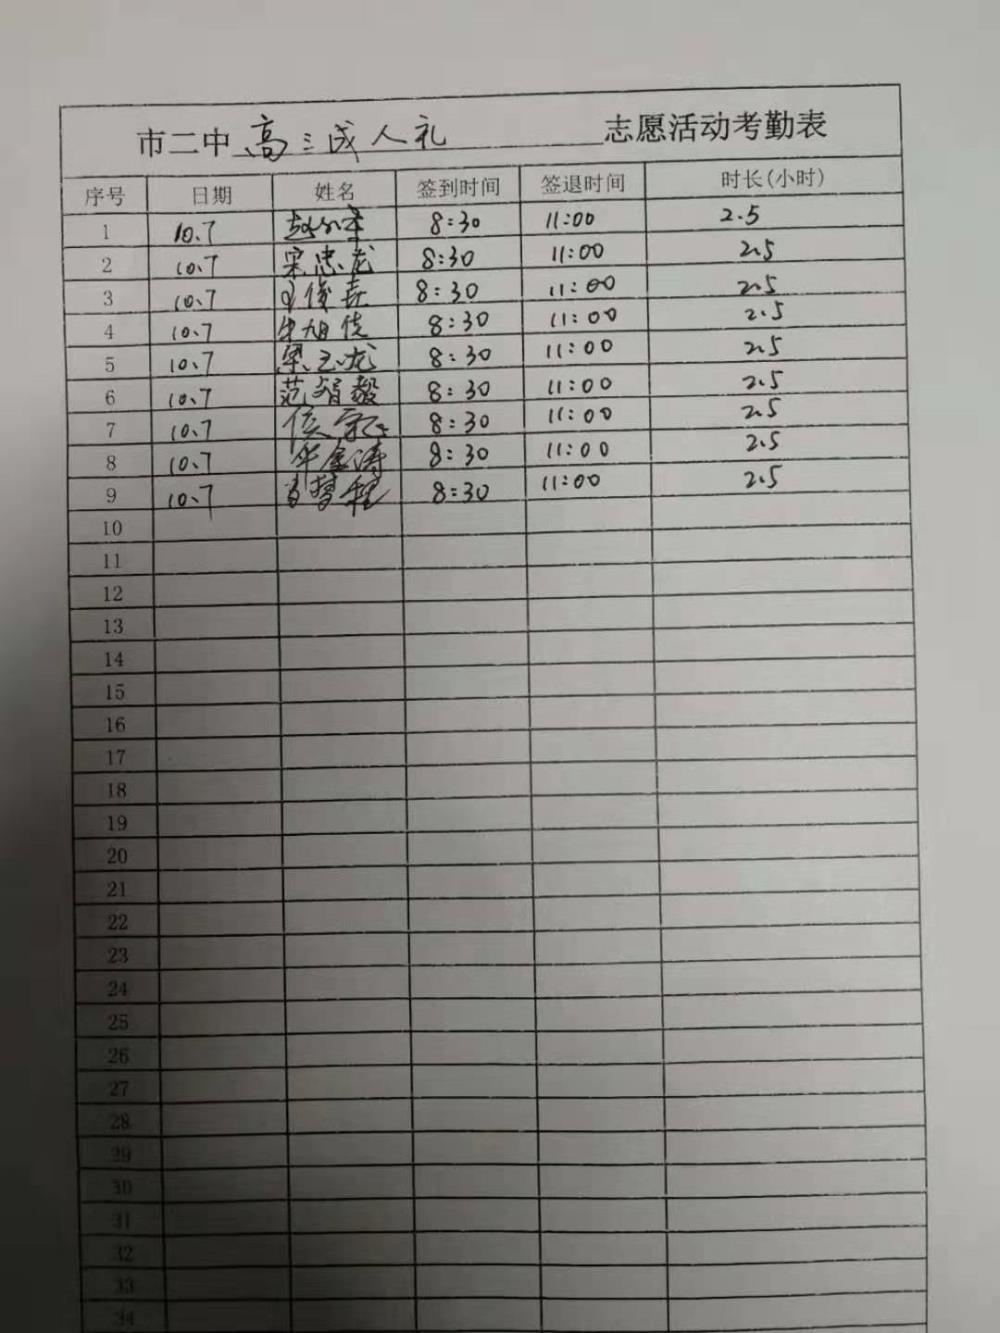 市二中 高三成人礼 志愿活动考勤表
序号 日期 姓名 签到时间 签退时间 时长(小时)
1 10.7 8:30 11:00 2.5
2 10.7 宋忠龙 8:30 11:00 2.5
3 10.7 俊喜 8:30 11:00 2.5
4 10.7 牛旭佳 8:30 11:00 2.5
5 10.7 梁玉龙 8:30 11:00 2.5
6 10.7 范智毅 8:30 11:00 2.5
7 10.7 侯 8:30 11:00 2.5
8 10.7 8:30 11:00 2.5
9 10.7 梦程 8:30 11:00 2.5
10
11
12
13
14
15
16
17
18
19
20
21
22
23
24
25
26
27
28
29
30
31
32
33
34